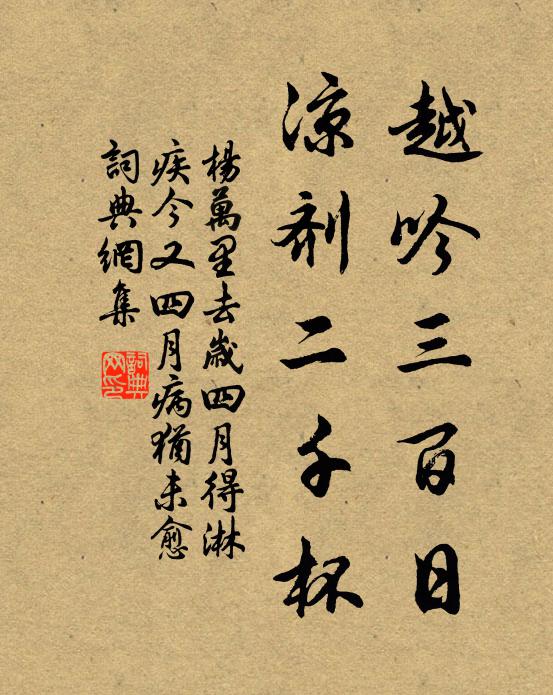 越吟三百日
凉剂二千杯
楊萬里去歲四月得淋
疾今又四月病猶未愈
詞典網集
詞典網印